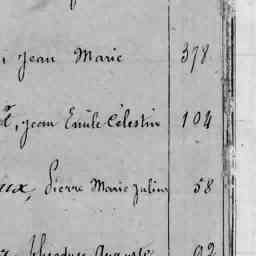 Jean Marie 378
Jean Emile Célestin 104
aux, Pierre Marie Julien 58
Auguste 92